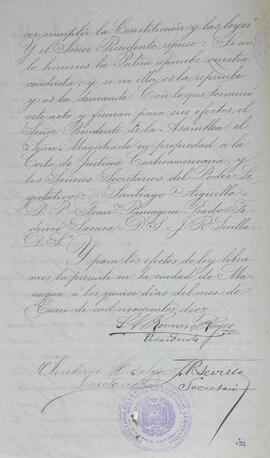 cer cumplir la Constitución y las leyes"
Y el Señor Presidente repuso: Si así
lo hiciereis la Patria apruebe vuestra
conducta; y si no ella os la repruebe
y os la demande. Con lo que terminó
este acto y firman para sus efectos, el
Señor Presidente de la Asamblea, el
Señor Magistrado en propiedad a la
Corte de Justicia Centroamericana, y
los Señores Secretarios del Poder Le-
gislativo. Santiago Argüello
D. P. Fran.co Paniagua Prado. Fe-
derico Sacasa D. S. J. R. Sevilla
D. S."
Y para los efectos de ley libra-
mos la presente en la ciudad de Ma-
nagua a los quince días del mes de
Enero de mil novecientos diez
Román y Reyes
Presidente
J. R. Sevilla
Secretario
Secretario